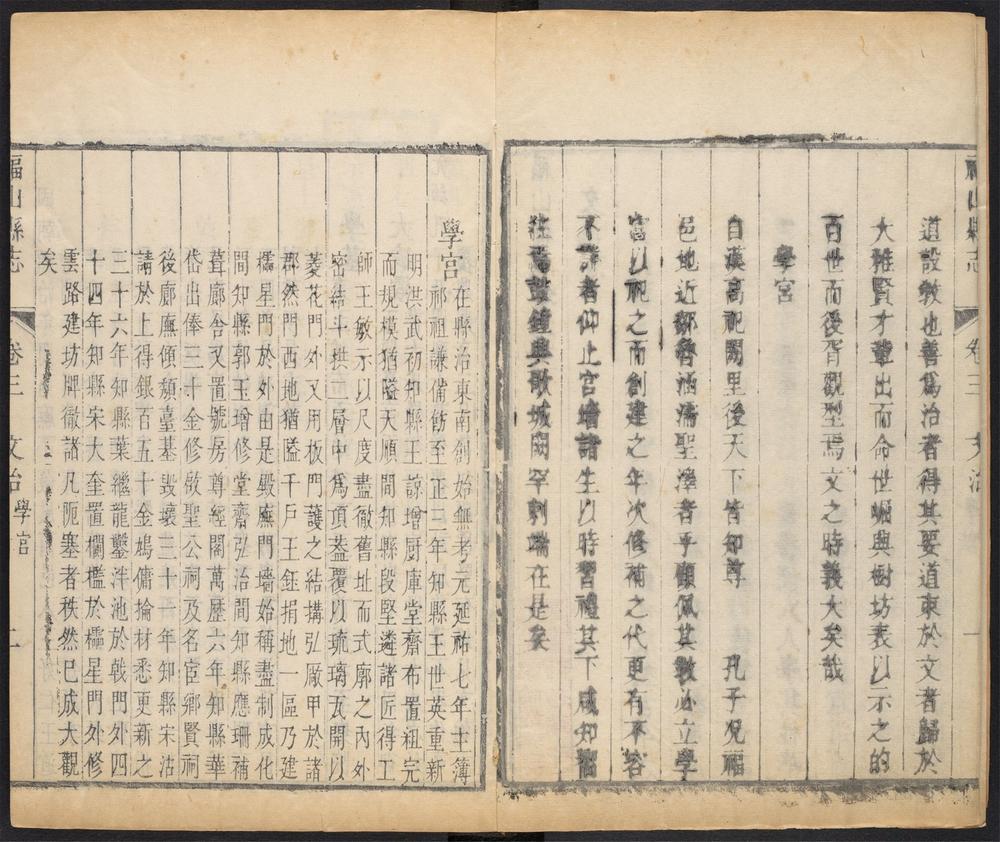 福山縣志
卷三 文治
道設教也善爲治者得其要道束於文者歸於
大雅賢才輩出而命世崛興樹坊表以示之的
百世而後胥觀型焉文之時義大矣哉
學宮
自漢高祀闕里後天下皆知尊 孔子况福
邑地近鄒魯涵濡聖澤者乎顧佩其教必立學
宮以祀之而創建之年次修補之代更有不容
不詳者仰止宮墻諸生以時習禮其下咸知福
在 鼓鐘興歌城闕罕刺端在是矣
學宮在縣治東南創始無考元延祐七年主簿
祁祖謙備飭至正三年知縣王世英重新
明洪武初知縣王諒增厨庫堂齋布置粗完
而規模猶隘天順間知縣段堅遴諸匠得工
師王敏示以尺度盡徹舊址而式廓之內外
密結斗拱二層中爲頂葢覆以琉璃瓦開以
菱花門外又用板門護之結搆弘厰甲於諸
郡然門西地猶隘千戶王鈺捐地一區乃建
櫺星門於外由是殿廡門墻始稱盡制成化
間知縣郭玉增修堂齋弘治間知縣應珊補
葺廊舍又置號房尊經閣萬歷六年知縣華
岱出俸三十金修啟聖公祠及名宦鄉賢祠
後廊廡傾頽臺基毀壞三十一年知縣宋沽
請於上得銀百五十金鳩傭掄材悉更新之
三十六年知縣葉繼龍鑿泮池於戟門外四
十四年知縣宋大奎置欄檻於櫺星門外修
雲路建坊牌徹諸凡阨塞者秩然已成大觀
矣
福山縣志
卷三 文治 學宮 二